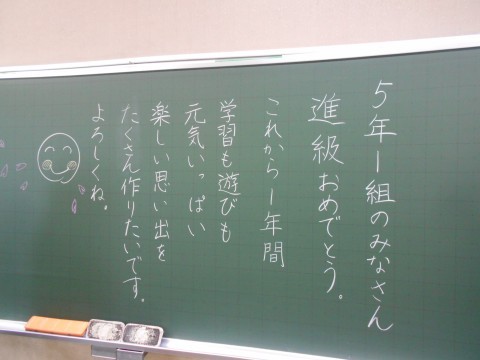 5年1組のみなさん
進級おめでとう。
これから1年間
学習も遊びも
元気いっぱい
楽しい思い出を
たくさん作りたいです。
よろしくね。